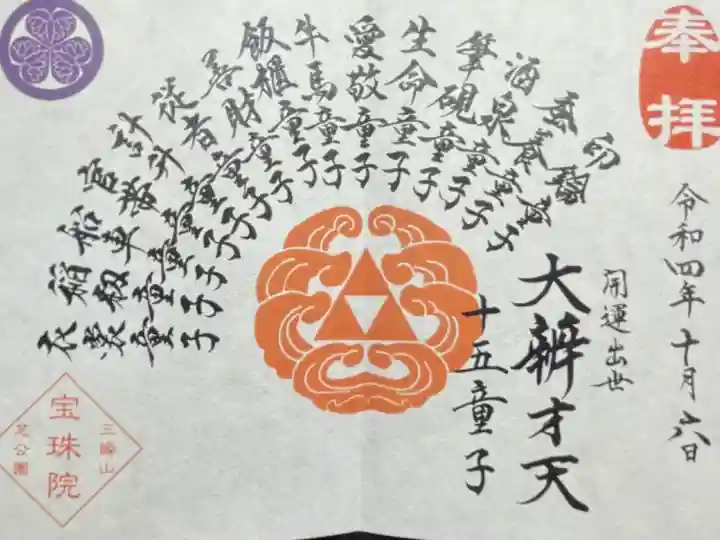 奉拝
令和四年十月六日
開運出世
大辨才天
十五童子
印鑰童子
蚕養童子
酒泉童子
筆硯童子
生命童子
愛敬童子
牛馬童子
飯櫃童子
善財童子
從者童子
計升童子
官帯童子
船車童子
稲籾童子
衣裳童子
三縁山
宝珠院
芝公園